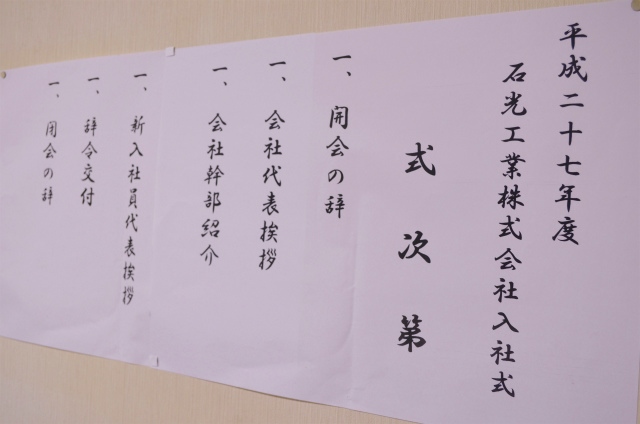 平成二十七年度
石光工業株式会社入社式
式次第
一、開会の辞
一、会社代表挨拶
一、会社幹部紹介
一、新入社員代表挨拶
一、辞令交付
一、閉会の辞